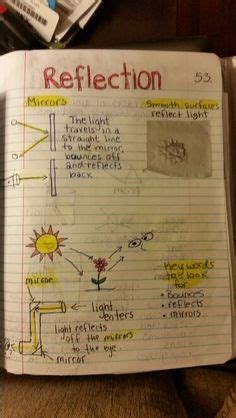 Reflection
53.
Mirrors
The light
travels in a
straight line
to the mirror,
bounces off
and reflects
back
Smooth surfaces
reflect light
mirror
light
enters
light reflects
off the mirrors
to the eye.
mirror
Key words
to look
for:
• Bounces
• reflects
• mirrors